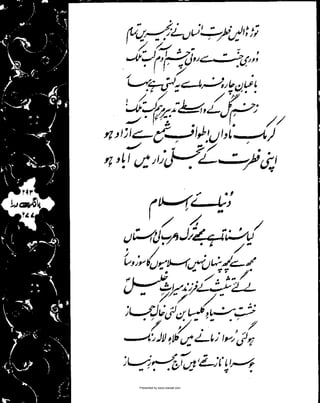 توڑ ڈالیں فطرتِ انساں نے زنجیریں تمام
دوریِ جنت سے روتی چشمِ آدم کب تلک
باغبانِ چارہ فرما سے یہ کہتی ہے بہار
زخمِ گل کے واسطے تدبیرِ مرہم کب تلک!
کرمکِ ناداں! طوافِ شمع سے آزاد ہو
اپنی فطرت کے تجلی زار میں آباد ہو
دُنیائے اِسلام
کیا سناتا ہے مجھے ترک و عرب کی داستاں
مجھ سے کچھ پنہاں نہیں اسلامیوں کا سوز و ساز
لے گئے تثلیث کے فرزند میراثِ خلیلؑ
خشتِ بنیادِ کلیسا بن گئی خاکِ حجاز
ہو گئی رسوا زمانے میں کلاہِ لالہ رنگ
جو سراپا ناز تھے، ہیں آج مجبورِ نیاز
۲۴۳
بانگِ درا
۲۷۷
Presented by www.ziaraat.com